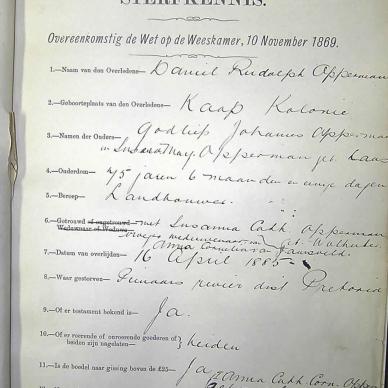 STERFKENNIS.
Overeenkomstig de Wet op de Weeskamer, 10 November 1869.
1.—Naam van den Overledene— Daniel Rudolph Opperman
2.—Geboorteplaats van den Overledene— Kaap Kolonie
3.—Namen der Ouders— Godlieb Johannes Opperman
Opperman geb.
4.—Ouderdom— 75 jaren 6 maanden en enige dagen
5.—Beroep— Landbouwer
6.—Getrouwd of ongetrouwd— met Susanna Cath. Opperman
Weduwnaar of Weduwe—
7.—Datum van overlijden— 16 April 1885
8.—Waar gestorven— Pienaars rivier dist Pretoria
9.—Of er testament bekend is— Ja.
10.—Of er roerende of onroerende goederen of
beiden zijn nagelaten— } beiden
11.—Is de boedel naar gissing boven de £25— Ja